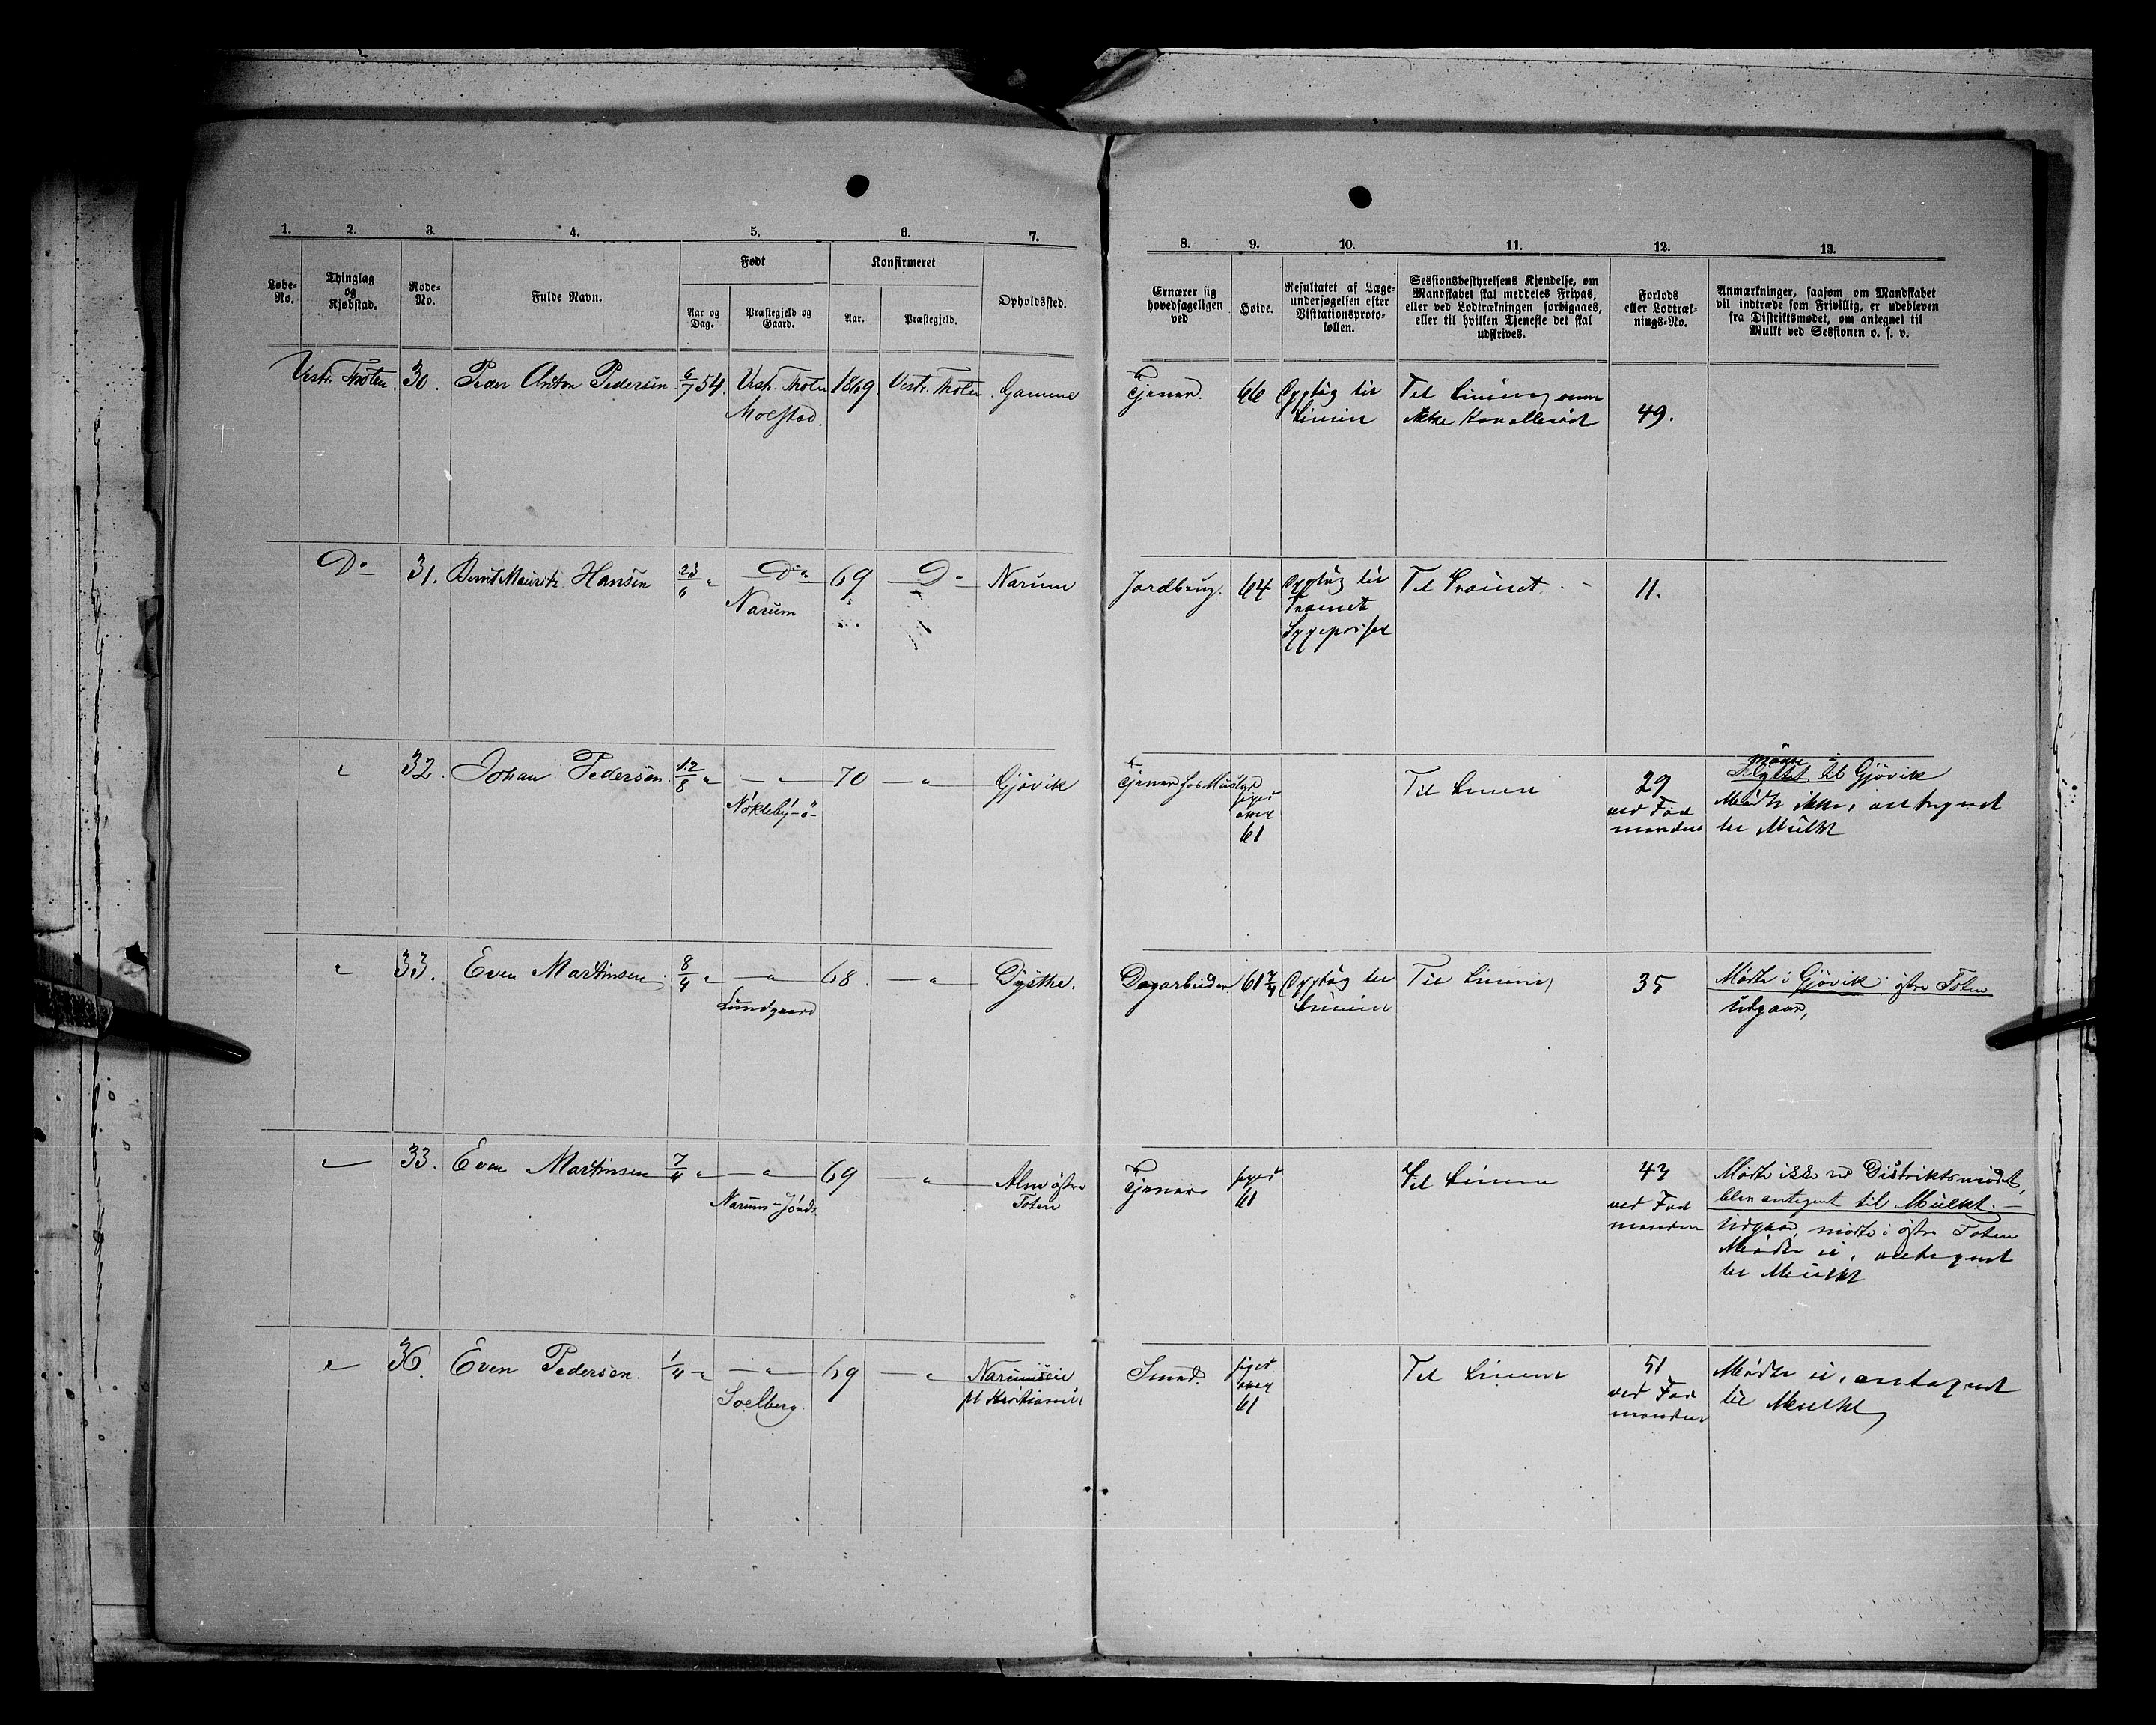 1. 2. 3. 4. 5. 6. 7. 8. 9. 10. 11. 12. 13.
Løbe-
No.
Thinglag
og
Kjøbstad.
Rode-
No.
Fulde Navn.
Født
Aar og
Dag.
Præstegjeld og
Gaard.
Konfirmeret
Aar.
Præstegjeld.
Opholdssted.
Ernærer sig
hovedsageligen
ved
Høide.
Resultatet af Læge-
undersøgelsen efter
Visitationsproto-
kollen.
Sessionsbestyrelsens Kjendelse, om
Mandskabet skal meddeles Fripas,
eller ved Lodtrækningen forbigaaes,
eller til hvilken Tjeneste det skal
udskrives.
Forlods
eller Lodtræk-
nings-No.
Anmærkninger, saasom om Mandskabet
vil indtræde som Frivillig, er udebleven
fra Distriktsmødet, om antegnet til
Mulkt ved Sessionen o. s. v.
Vestr. Thoten. 30. Peder Anton Pedersen 6/7 54. Vestr. Thoten 1869. Vestr. Thoten. Gamme Tjener. 66 Dygtig til Til Linien, men
Moestad. Linien ikke Kavallerist 49.
Do 31. Bernt Mauritz Hansen 23/6 " Do 69 Do Narum Jordbrug. 64 Dygtig til Til Trainet 11.
Narum Trainet
Sygepasser
" 32. Johan Pedersen. 12/8 " — " — 70 — " — Gjøvik Tjener hos Mustad siges Til Linien 29
Nøkleby-ø- over 61 ved Fod
manden
møder i
Flyttet til Gjøvik
Mødte ikke, antegnet
til Mulkt
" 33. Even Martinsen 8/4 " — " — 68. — " — Dysthe. Dagarbeider 61 3/4 Dygtig til Til Linien 35
Lundgaard Linien
Mødte i Gjøvik østre Toten
Udgaar,
" 33. Even Martinsen 7/4 " — " — 69 — " — Alm østre Tjener siges Til Linien 43
Narum-Jónds. Toten 61 ved Fod
manden
Mødte ikke ved Distriktsmødet,
blev antegnet til Mulkt. —
Udgaar, mødte i østre Toten
Mødte ei, antegnet
til Mulkt
" 36. Even Pedersen. 1/4 " — " — 69 — " — Narumseie Smed. siges Til Linien 51
Soelberg. pt Kristiania over 61 ved Fod
manden
Mødte ei, antegnet
til Mulkt